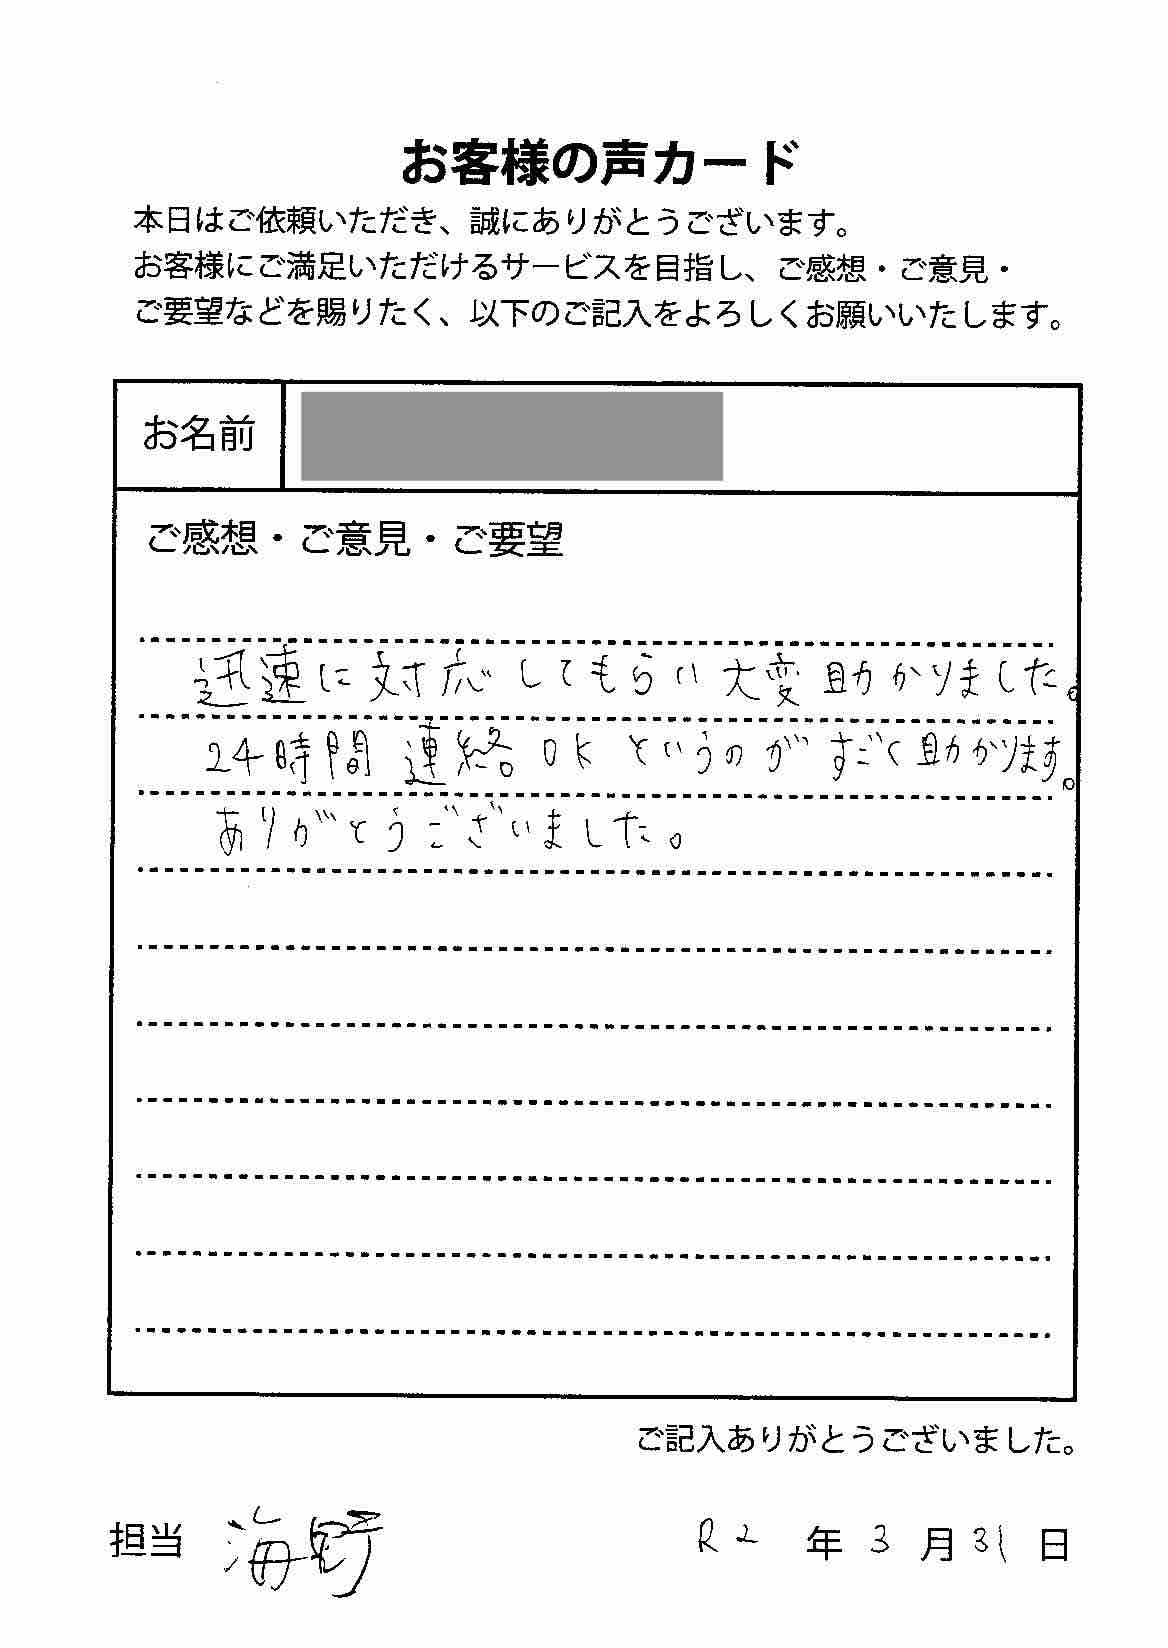 お客様の声カード
本日はご依頼いただき、誠にありがとうございます。
お客様にご満足いただけるサービスを目指し、ご感想・ご意見・
ご要望などを賜りたく、以下のご記入をよろしくお願いいたします。
お名前
ご感想・ご意見・ご要望
迅速に対応してもらい大変助かりました。
24時間連絡OKというのがすごく助かります。
ありがとうございました。
ご記入ありがとうございました。
担当 海野 R2年3月31日